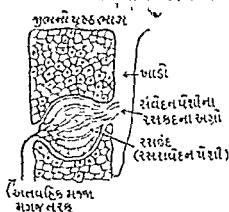 જીભનો પૃષ્ઠભાગ
ખાડો
સંવેદન પેશીના
રસકંદના અગ્રો
રસકંદ
(રસસંવેદન પેશી)
મગજ તરફ